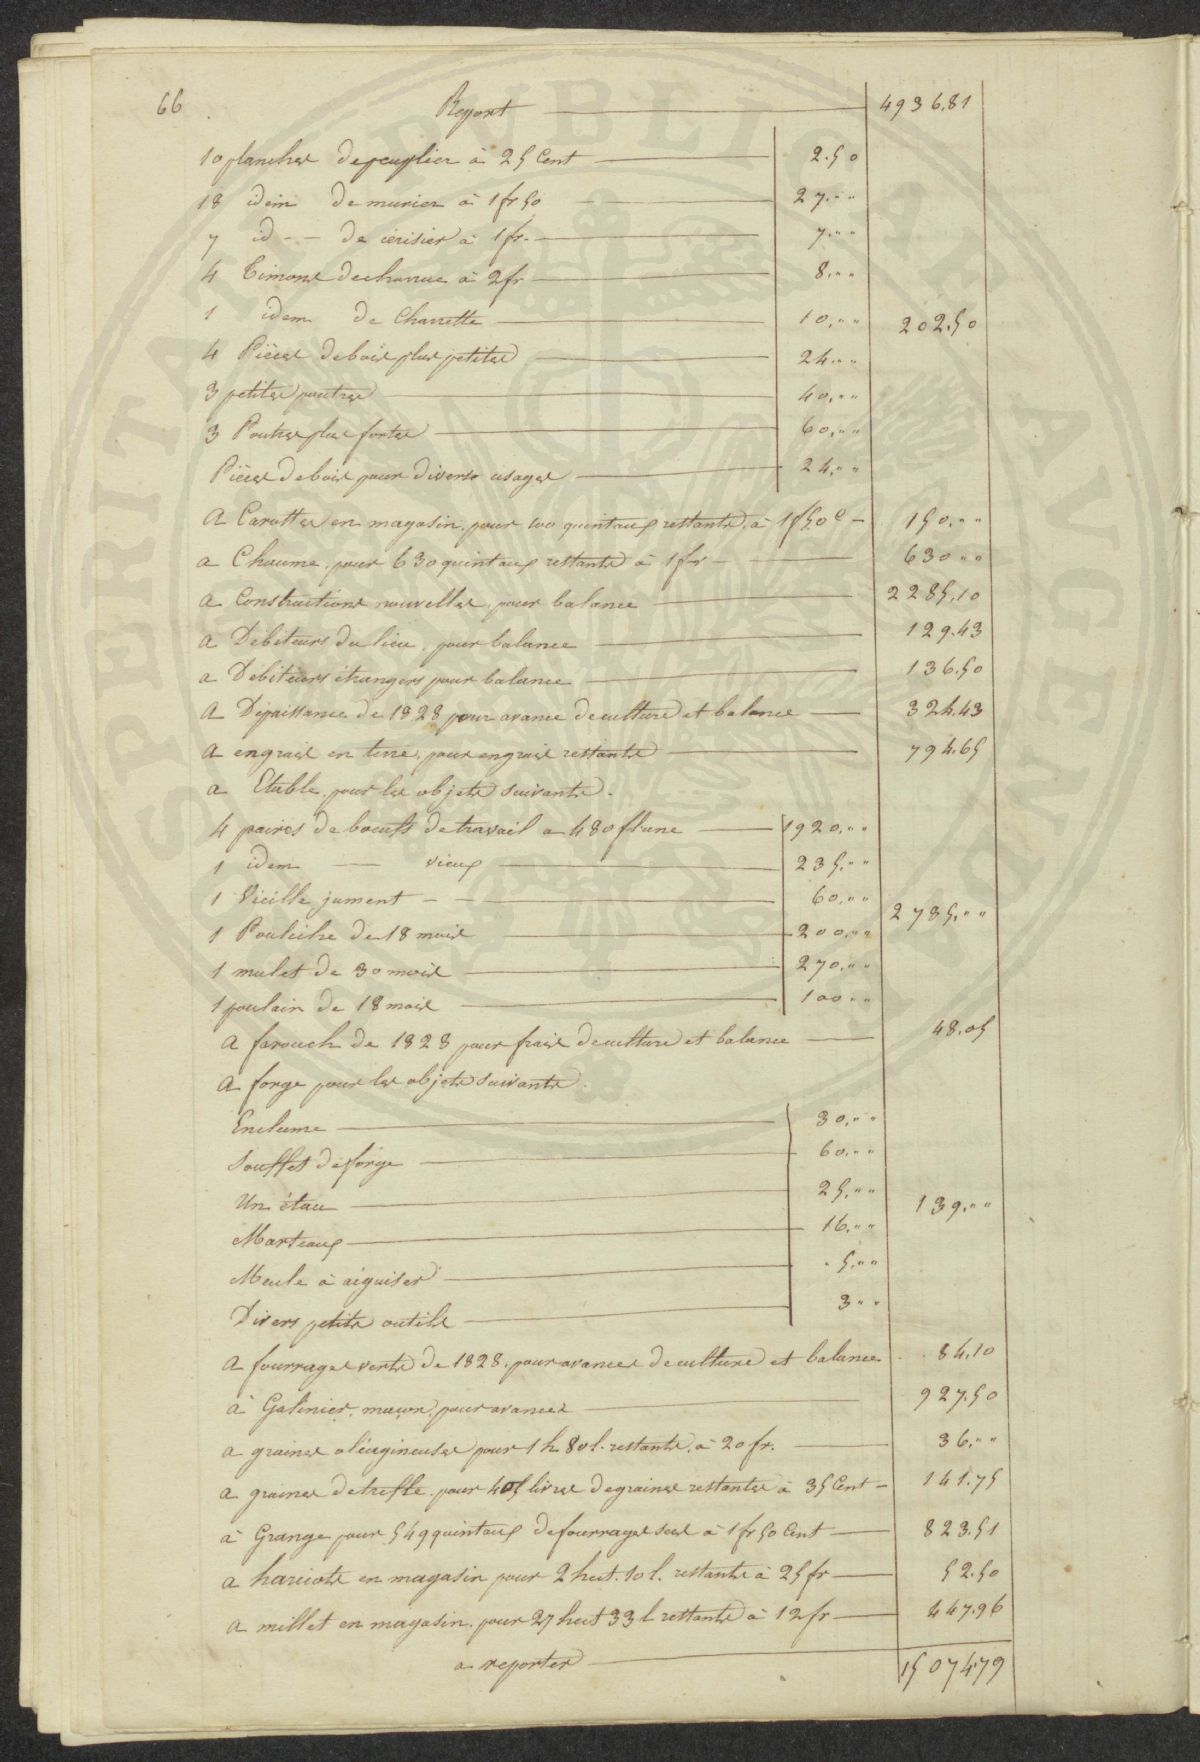 66 Report 4936.81
10 planches de peuplier à 25 Cent 2.50
18 idem de murier à 1fr 50 27."
7 id - - de cérisier à 1fr. 7."
4 Timons de charrue à 2fr 8."
1 idem de Charrette 10." 202.50
4 Pièces de bois plus petites 24."
3 petites poutres 40."
3 Poutres plus fortes 60."
Pièces de bois pour divers usages 24."
A Carottes en magasin, pour 100 quintaux restants, à 1f50c 150."
a Chaume, pour 630 quintaux restants à 1fr 630"
a Constructions nouvelles, pour balance 2285.10
a Débiteurs du lieu, pour balance 129.43
a Débiteurs étrangers pour balance 136.50
A Dépaissance de 1828 pour avance de culture et balance 324.43
A engrais en terre, pour engrais restants 794.65
a Etable, pour les objets suivants.
4 paires de bœufs de travail a 480f l'une 1920."
1 idem vieux 235."
1 Vieille jument 60." 2785."
1 Pouliche de 18 mois 200."
1 mulet de 30 mois 270."
1 poulain de 18 mois 100"
A farouch de 1828 pour frais de culture et balance 48.05
A forge pour les objets suivants.
Enclume 30."
Soufflet de forge 60."
Un étau 25." 139."
Marteaux 16."
Meule à aiguiser 5."
Divers petits outils 3"
A fourrages verts de 1828, pour avances de culture et balance 84.10
à Galinier, maçon, pour avances 927.50
a graines oléagineuses pour 1h 80l. restants, à 20fr. 36."
a graines de treffle, pour 405 livres de graines restantes à 35 Cent 141.75
à Grange pour 549 quintaux de fourrages secs à 1fr 50 Cent 823.51
a haricots en magasin pour 2 hect. 10 l. restants à 25fr 52.50
a millet en magasin, pour 37 hect 33 l restants à 12fr 447.96
a reporter 15074.79
SPERITAT PUBLICA AB AUGENDA